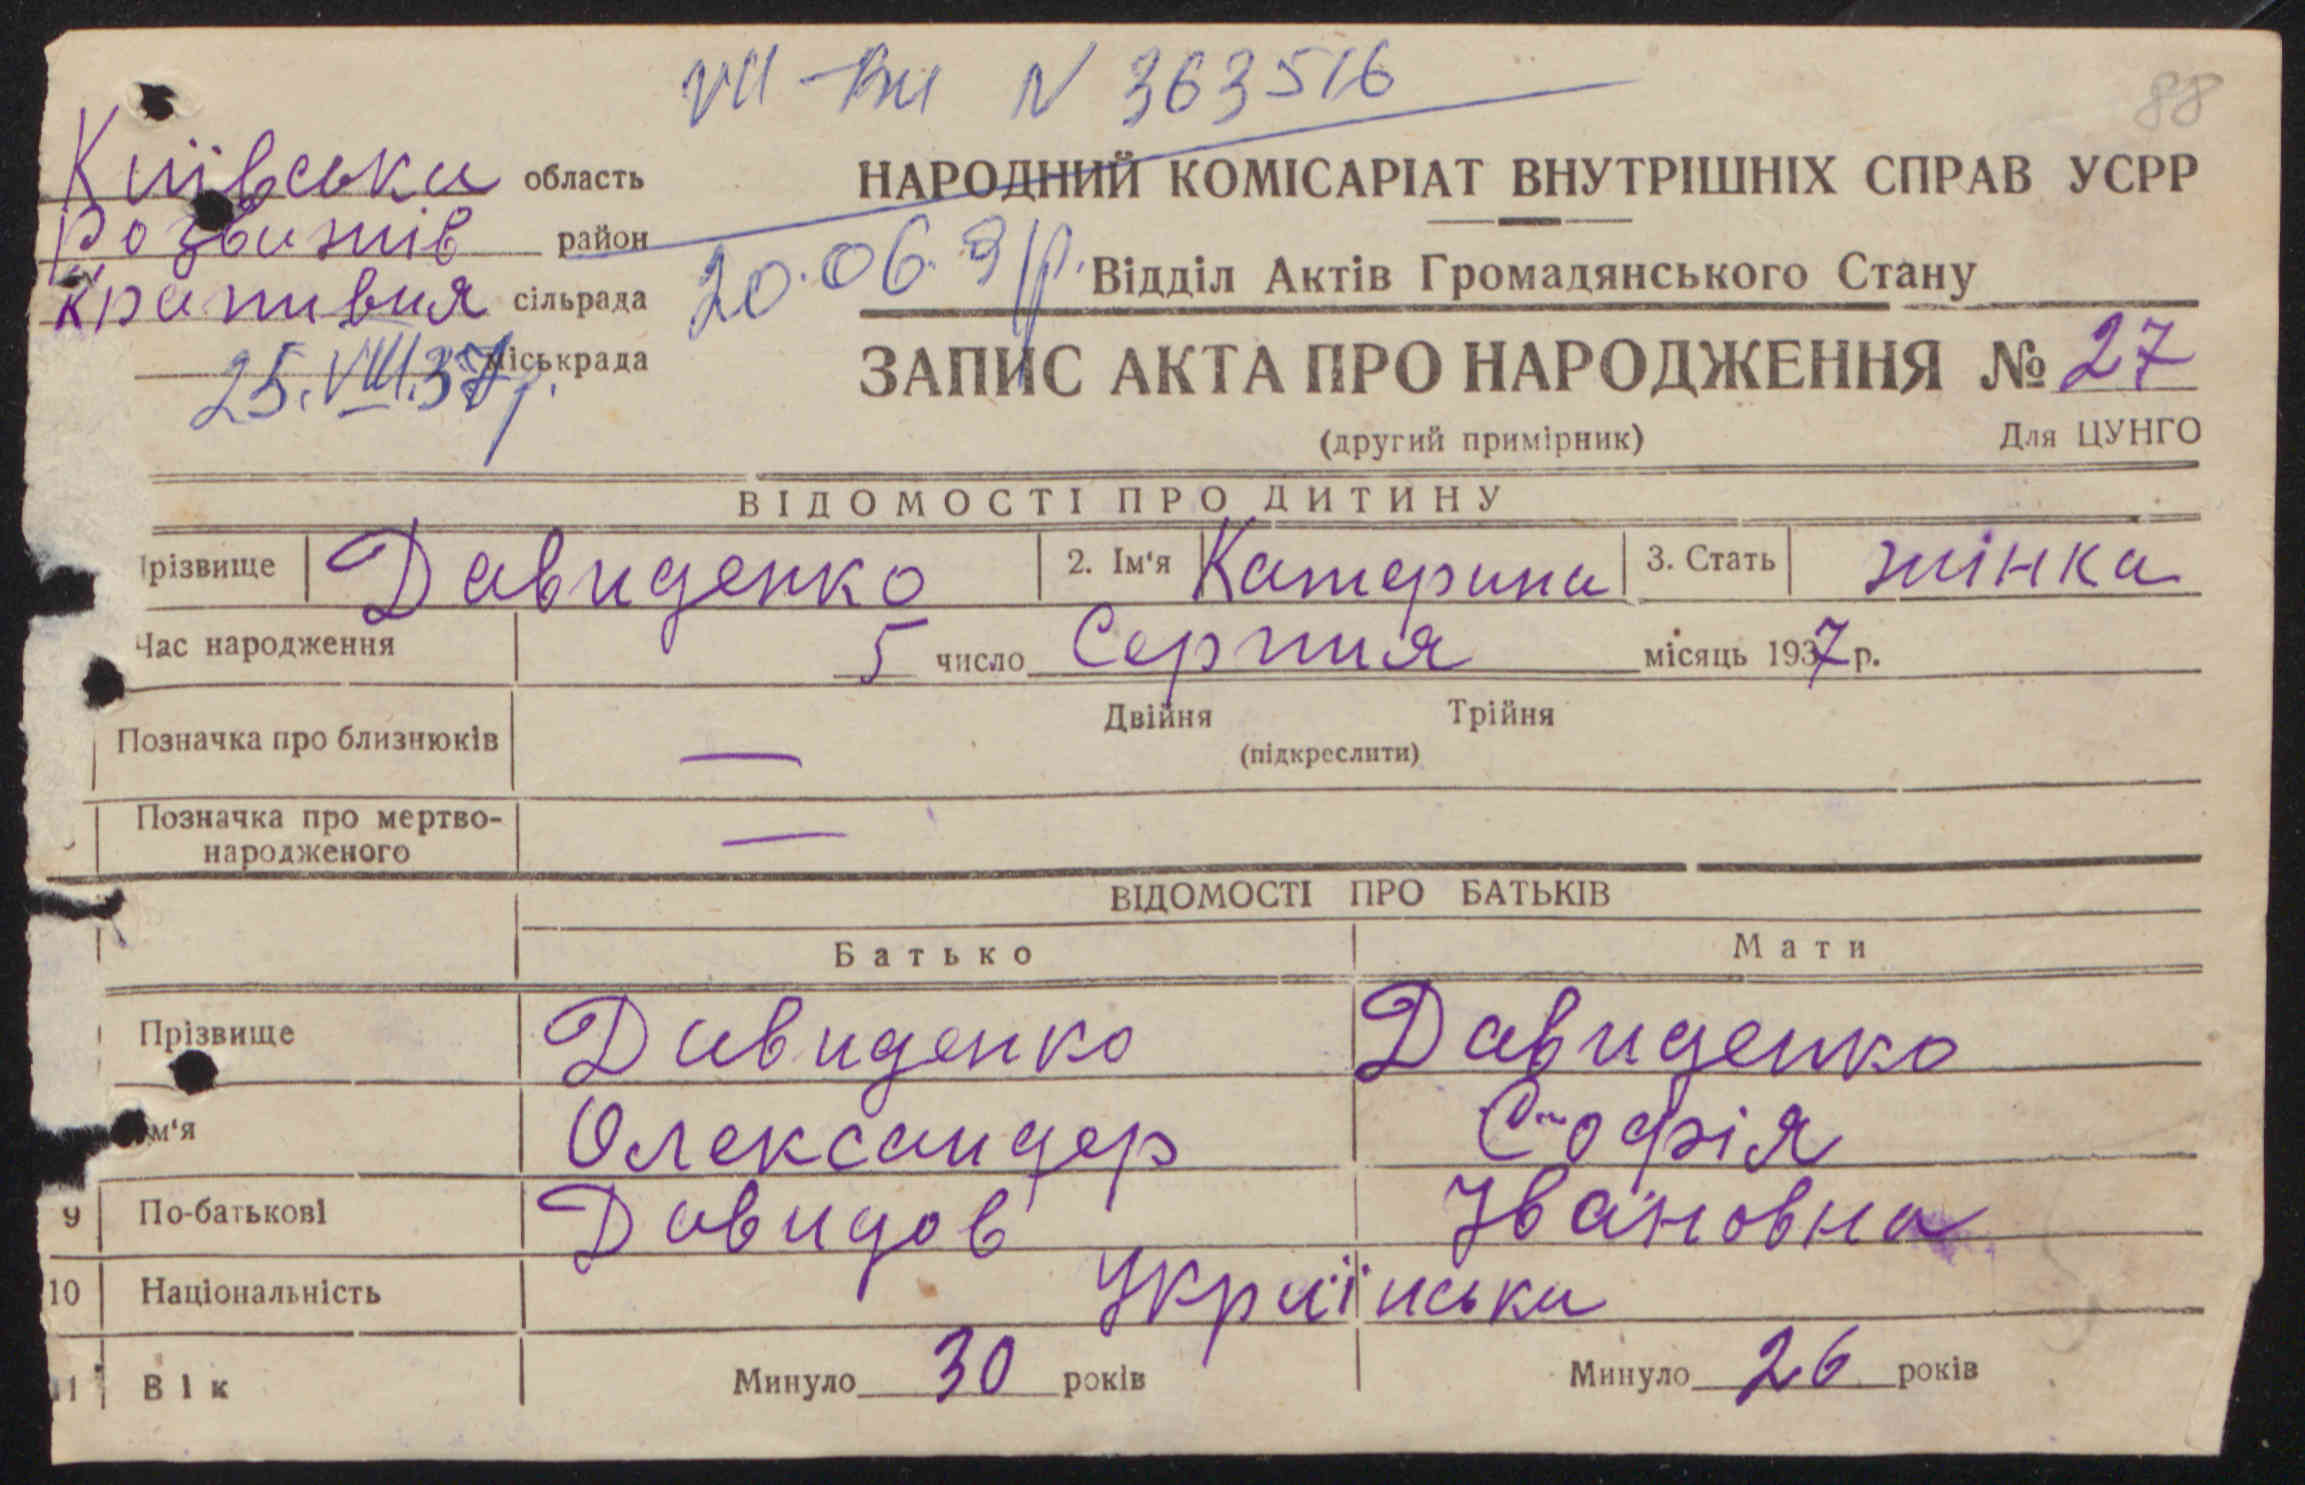 VII-ВИ N 363516
88
Київська область
Розважів район
Крапивня сільрада
міськрада
25.VIII.37р.
НАРОДНИЙ КОМІСАРІАТ ВНУТРІШНІХ СПРАВ УСРР
20.06.
Відділ Актів Громадянського Стану
ЗАПИС АКТА ПРО НАРОДЖЕННЯ № 27
(другий примірник) Для ЦУНГО
ВІДОМОСТІ ПРО ДИТИНУ
Прізвище Давиденко 2. Ім'я Катерина 3. Стать жінка
Час народження 5 число Серпня місяць 1937 р.
Позначка про близнюків — Двійня Трійня
(підкреслити)
Позначка про мертво-
народженого —
ВІДОМОСТІ ПРО БАТЬКІВ
Батько Мати
Прізвище Давиденко Давиденко
Ім'я Олександер Софія
9 По-батькові Давидов Івановна
10 Національність Українська
11 Вік Минуло 30 років Минуло 26 років